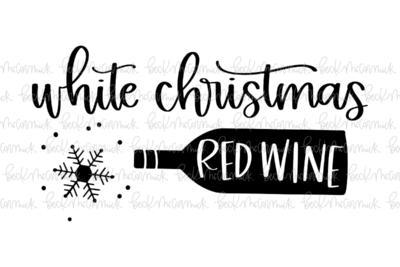 white christmas
RED WINE